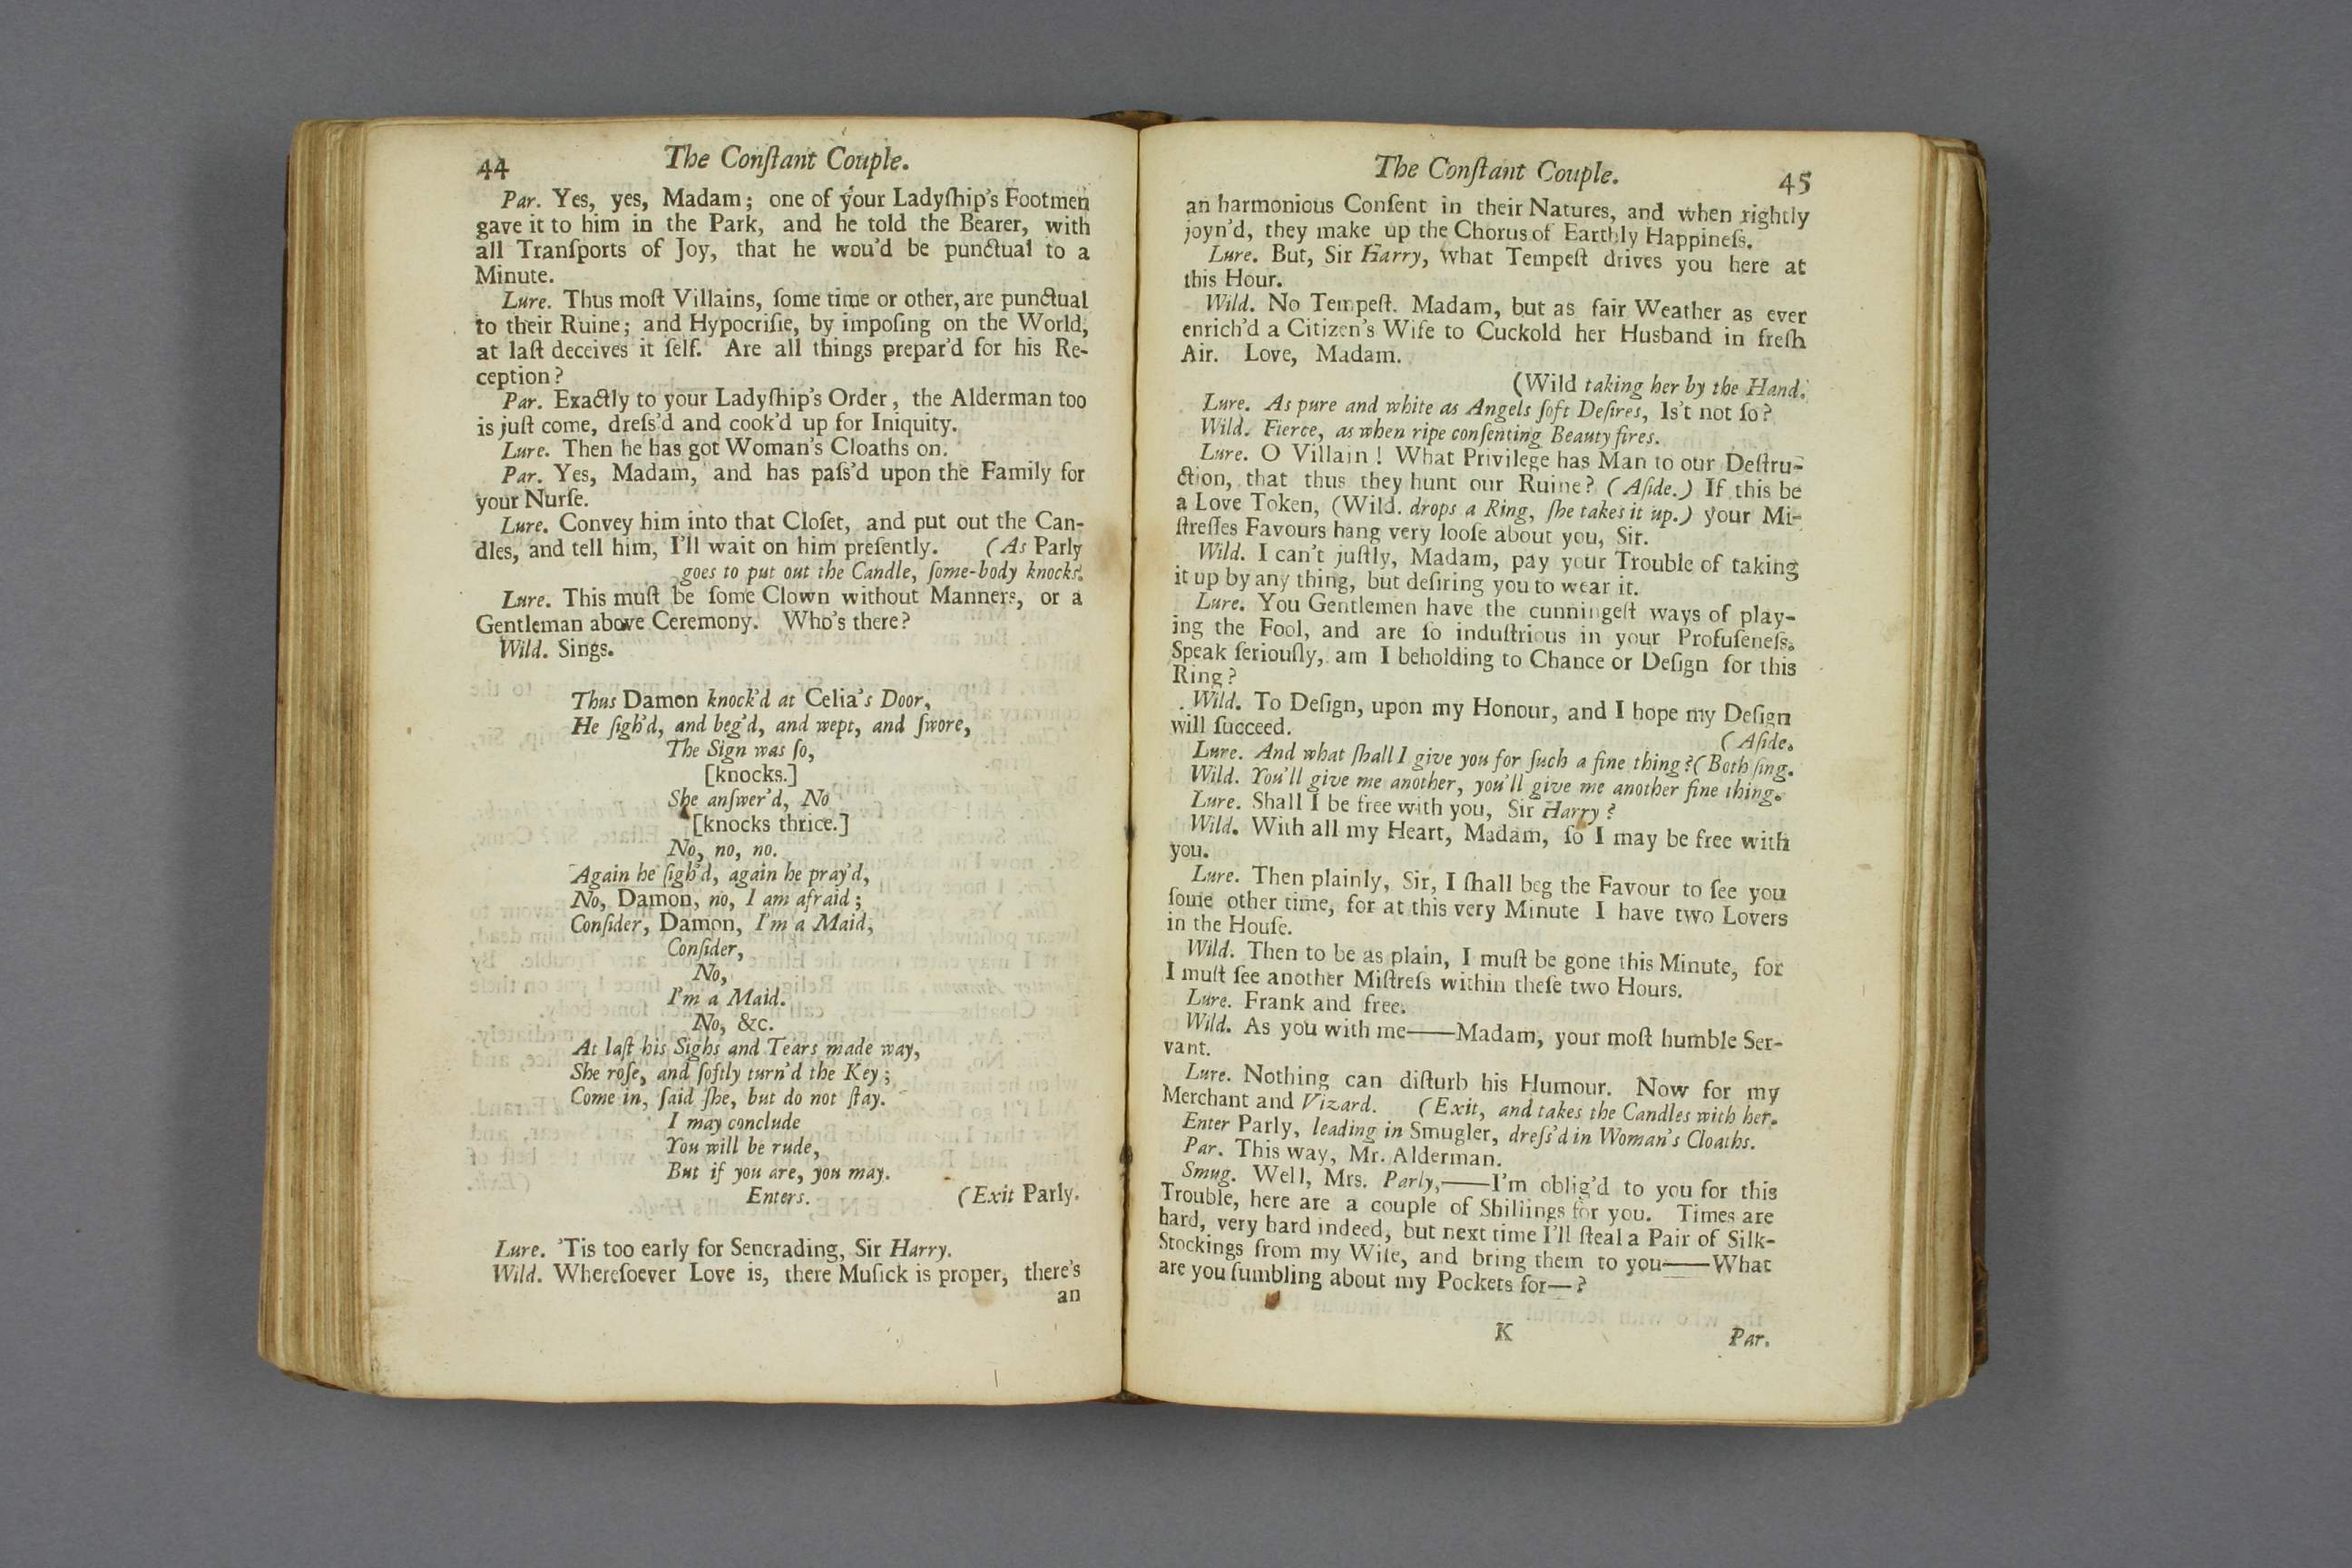 44 The Conſtant Couple.
Par. Yes, yes, Madam; one of your Ladyſhip's Footmen
gave it to him in the Park, and he told the Bearer, with
all Tranſports of Joy, that he wou'd be punctual to a
Minute.
Lure. Thus moſt Villains, ſome time or other, are punctual
to their Ruine; and Hypocriſie, by impoſing on the World,
at laſt deceives it ſelf. Are all things prepar'd for his Re-
ception?
Par. Exactly to your Ladyſhip's Order, the Alderman too
is juſt come, dreſs'd and cook'd up for Iniquity.
Lure. Then he has got Woman's Cloaths on.
Par. Yes, Madam, and has paſs'd upon the Family for
your Nurſe.
Lure. Convey him into that Cloſet, and put out the Can-
dles, and tell him, I'll wait on him preſently. (As Parly
goes to put out the Candle, ſome-body knocks.
Lure. This muſt be ſome Clown without Manners, or a
Gentleman above Ceremony. Who's there?
Wild. Sings.
Thus Damon knock'd at Celia's Door,
He ſigh'd, and beg'd, and wept, and ſwore,
The Sign was ſo,
[knocks.]
She anſwer'd, No
[knocks thrice.]
No, no, no.
Again he ſigh'd, again he pray'd,
No, Damon, no, I am afraid;
Conſider, Damon, I'm a Maid,
Conſider,
No,
I'm a Maid.
No, &c.
At laſt his Sighs and Tears made way,
She roſe, and ſoftly turn'd the Key;
Come in, ſaid ſhe, but do not ſtay.
I may conclude
You will be rude,
But if you are, you may.
Enters. (Exit Parly.
Lure. 'Tis too early for Senerading, Sir Harry.
Wild. Whereſoever Love is, there Muſick is proper, there's
an
The Conſtant Couple. 45
an harmonious Conſent in their Natures, and when rightly
joyn'd, they make up the Chorus of Earthly Happineſs.
Lure. But, Sir Harry, what Tempeſt drives you here at
this Hour.
Wild. No Tempeſt. Madam, but as fair Weather as ever
enrich'd a Citizen's Wife to Cuckold her Husband in freſh
Air. Love, Madam.
(Wild taking her by the Hand.
Lure. As pure and white as Angels ſoft Deſires, Is't not ſo?
Wild. Fierce, as when ripe conſenting Beauty fires.
Lure. O Villain! What Privilege has Man to our Deſtru-
ction, that thus they hunt our Ruine? (Aſide.) If this be
a Love Token, (Wild. drops a Ring, ſhe takes it up.) your Mi-
ſtreſſes Favours hang very looſe about you, Sir.
Wild. I can't juſtly, Madam, pay your Trouble of taking
it up by any thing, but deſiring you to wear it.
Lure. You Gentlemen have the cunningeſt ways of play-
ing the Fool, and are ſo induſtrious in your Profuſeneſs.
Speak ſeriouſly, am I beholding to Chance or Deſign for this
Ring?
Wild. To Deſign, upon my Honour, and I hope my Deſign
will ſucceed. (Aſide.
Lure. And what ſhall I give you for ſuch a fine thing? (Both ſing.
Wild. You'll give me another, you'll give me another fine thing.
Lure. Shall I be free with you, Sir Harry?
Wild. With all my Heart, Madam, ſo I may be free with
you.
Lure. Then plainly, Sir, I ſhall beg the Favour to ſee you
ſome other time, for at this very Minute I have two Lovers
in the Houſe.
Wild. Then to be as plain, I muſt be gone this Minute, for
I muſt ſee another Miſtreſs within theſe two Hours.
Lure. Frank and free.
Wild. As you with me——Madam, your moſt humble Ser-
vant.
Lure. Nothing can diſturb his Humour. Now for my
Merchant and Vizard. (Exit, and takes the Candles with her.
Enter Parly, leading in Smugler, dreſs'd in Woman's Cloaths.
Par. This way, Mr. Alderman.
Smug. Well, Mrs. Parly,——I'm oblig'd to you for this
Trouble, here are a couple of Shillings for you. Times are
hard, very hard indeed, but next time I'll ſteal a Pair of Silk-
Stockings from my Wife, and bring them to you——What
are you fumbling about my Pockets for—?
K Par.